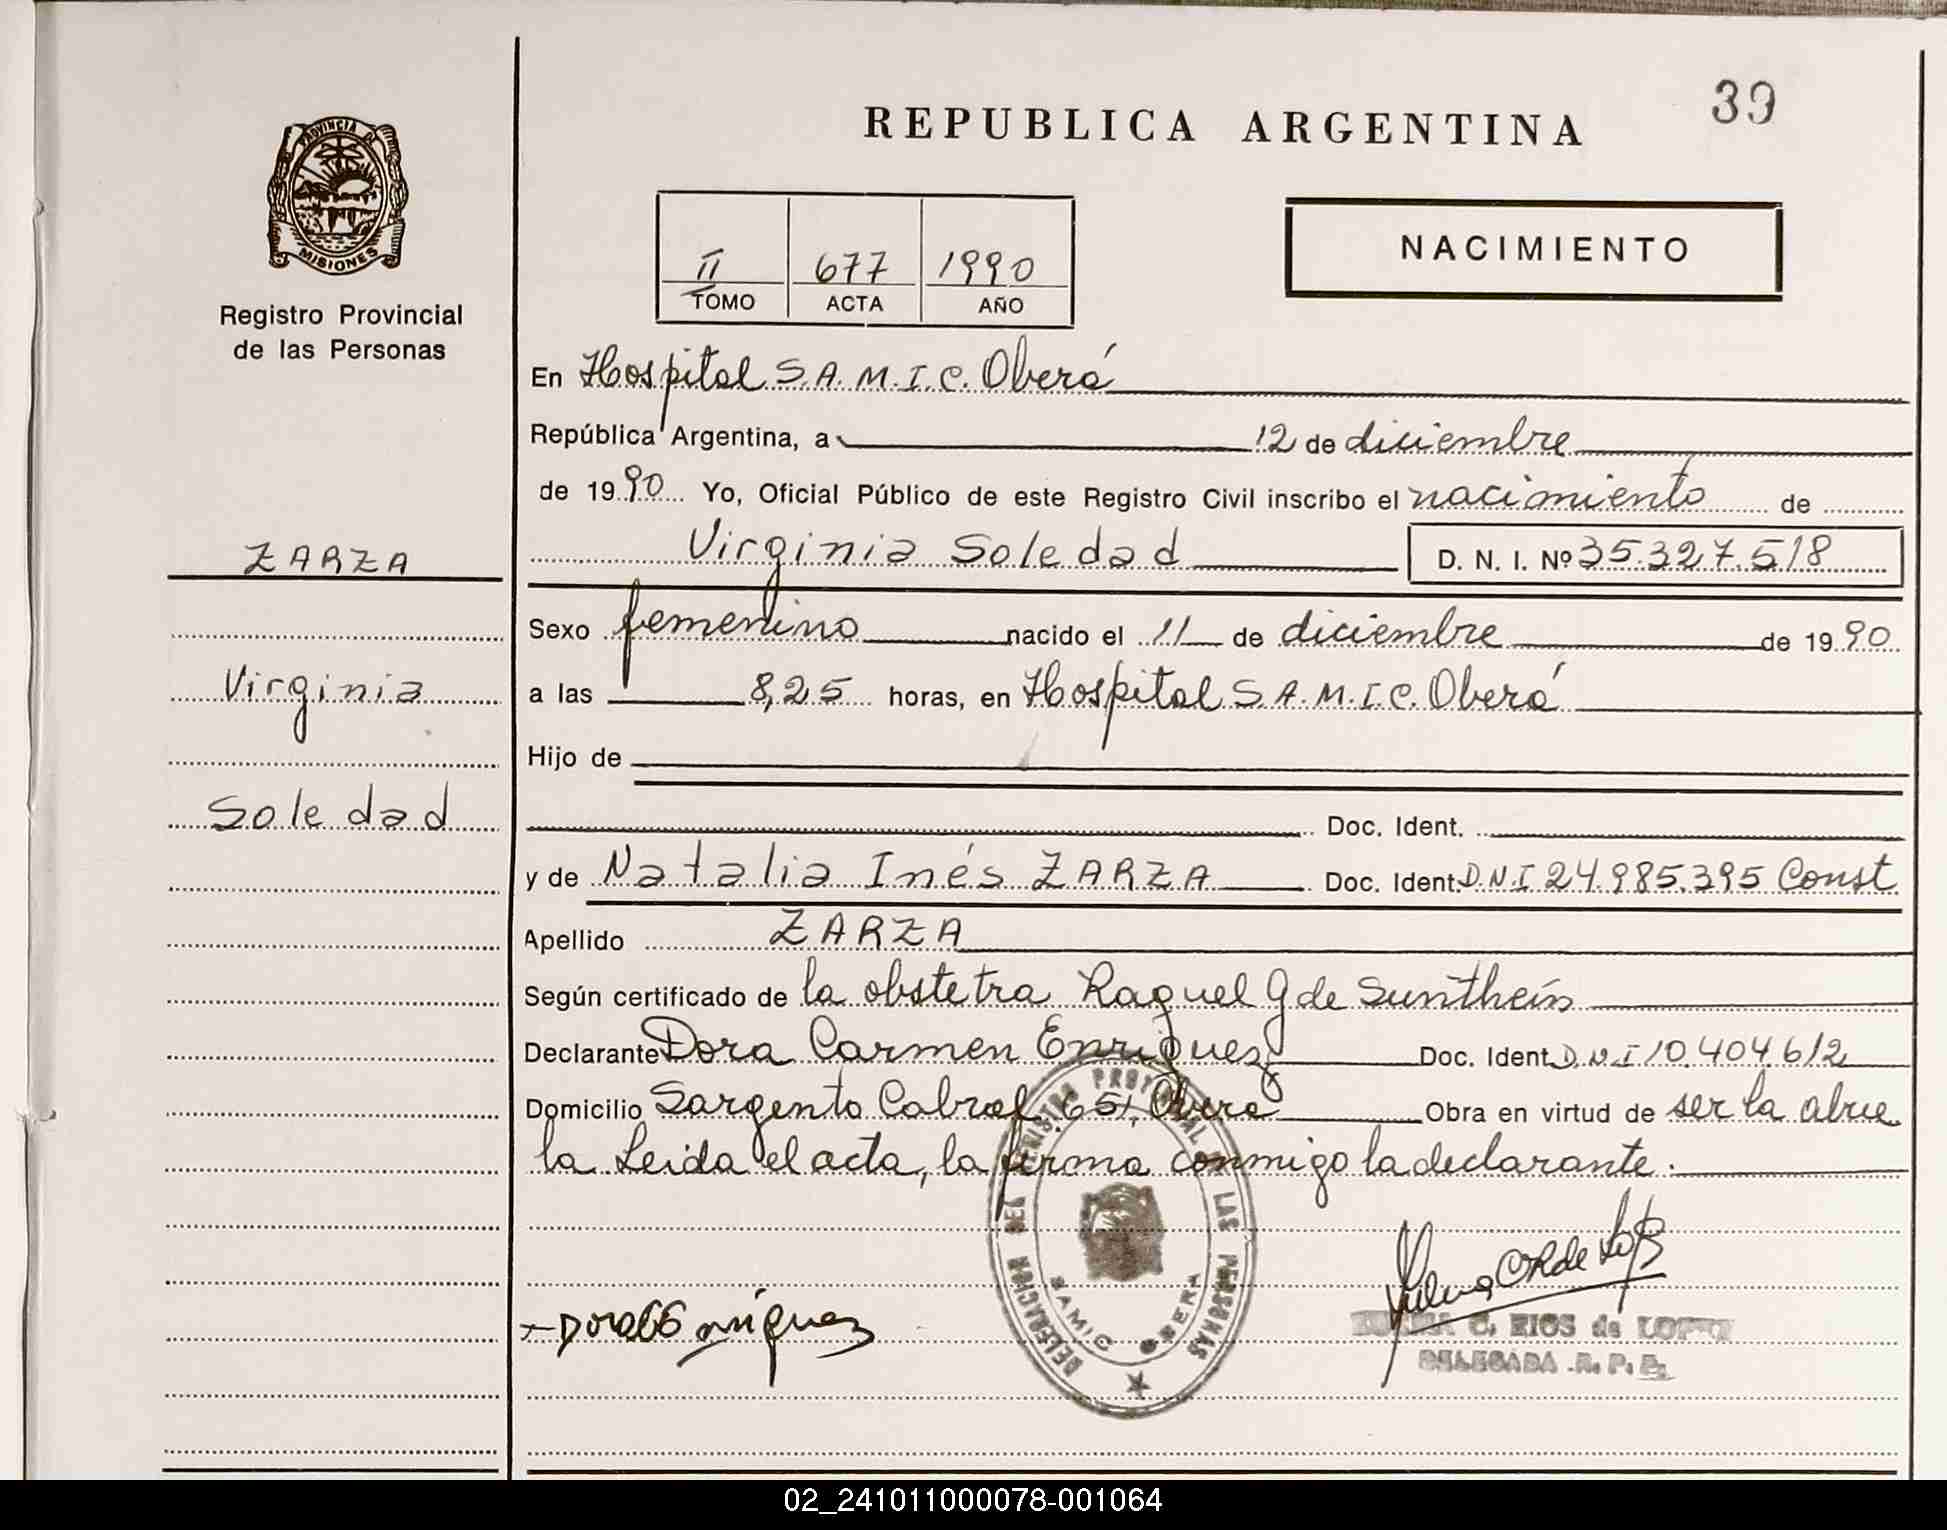 39
REPUBLICA ARGENTINA
PROVINCIA DE
MISIONES
Registro Provincial
de las Personas
II 677 1990
TOMO ACTA AÑO
NACIMIENTO
En Hospital S.A.M.I.C. Oberá
República Argentina, a 12 de diciembre
de 1990 Yo, Oficial Público de este Registro Civil inscribo el nacimiento de
Virginia Soledad D. N. I. Nº 35.327.518
ZARZA
Virginia
Soledad
Sexo femenino nacido el 11 de diciembre de 1990
a las 8,25 horas, en Hospital S.A.M.I.C. Oberá
Hijo de
Doc. Ident.
y de Natalia Inés ZARZA Doc. Ident. D.N.I 24.985.395 Const
Apellido ZARZA
Según certificado de la obstetra Raquel G de
Declarante Dora Carmen Enriquez Doc. Ident. D.N.I 10.404.612
Domicilio Sargento Cabral 651, Oberá Obra en virtud de ser la abue
la Leida el acta, la firma conmigo la declarante.
DELEGACION DEL REGISTRO PROVINCIAL LAS PERSONAS
SAMIC OBERA
C. RIOS de LOPEZ
DELEGADA R. P. P.
02_241011000078-001064